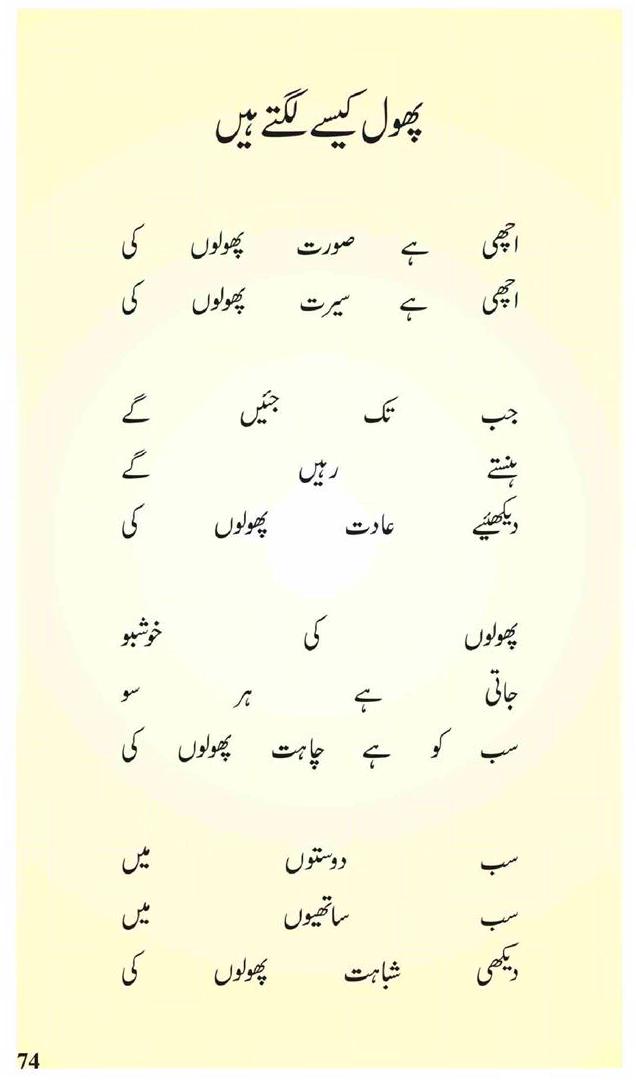 پھول کیسے لگتے ہیں
اچھی ہے صورت پھولوں کی
اچھی ہے سیرت پھولوں کی
جب تک جئیں گے
ہنستے رہیں گے
دیکھئیے عادت پھولوں کی
پھولوں کی خوشبو
جاتی ہے ہر سو
سب کو ہے چاہت پھولوں کی
سب دوستوں میں
سب ساتھیوں میں
دیکھی شباہت پھولوں کی
74